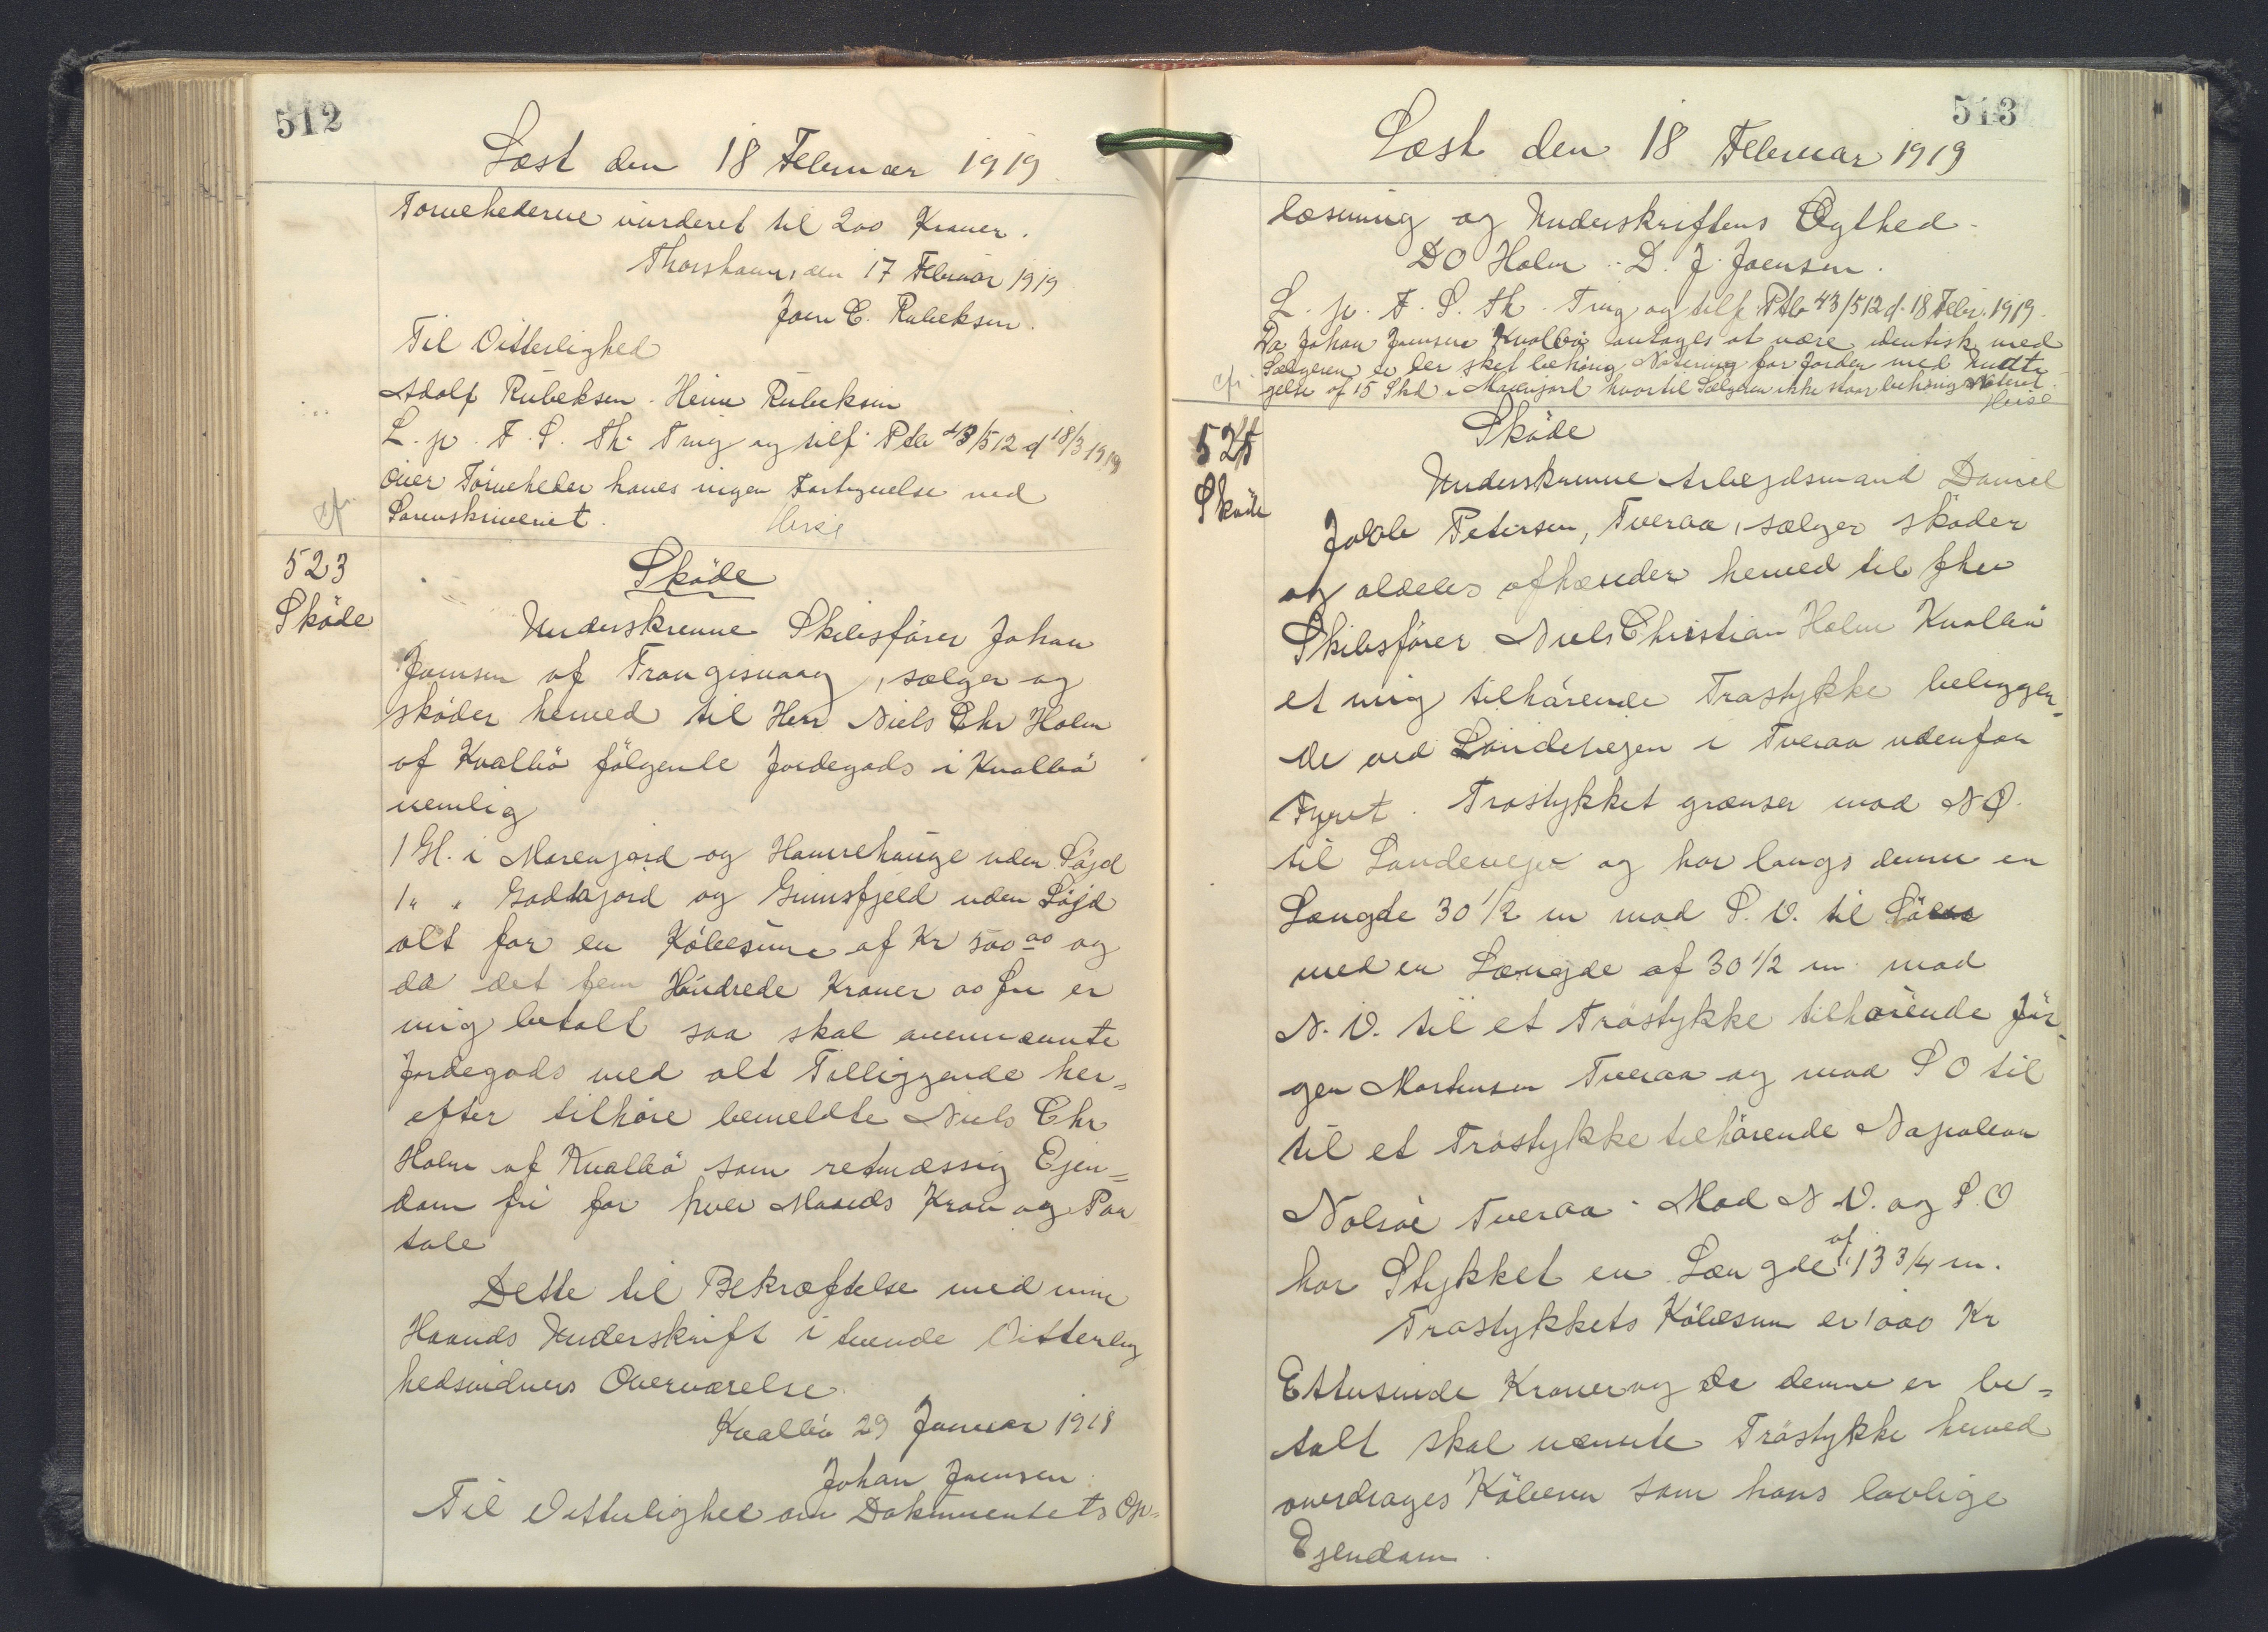 512
Læst den 18 Februar 1919
Tørvehederne vurderet til 200 Kroner.
Thorshavn, den 17 Februar 1919
Joen C. Rubeksen.
Til Vitterlighed
Adolf Rubeksen. Heine Rubeksen
L. p. F. S. Th. Ting og tilf. Ptb 43/512 d 18/3 1919
over Tørveheder haves ingen Fortegnelse ved
cfr. Sorenskriveriet.
523
Sköde
Sköde
Underskrevne Skibsförer Johan
Joensen af Frongisvaag, sælger og
sköder herved til Herr Niels Chr Holm
af Kvalbö fölgende Jordegods i Kvalbö
nemlig
1 Gl. i Morenjord og Hamrehauge uden Söjd
1 " " Goddajord og Grimsfjeld uden Söjd
alt for en Köbesum af Kr 500 00 og
da det fem Hundrede Kroner 00 Öre er
mig betalt saa skal ovennævnte
Jordegods med alt Tilliggende her=
efter tilhöre bemeldte Niels Chr
Holm af Kvalbö som retmæssig Ejen=
dom fri for hver Mands Krav og Paa
tale
Dette til Bekræftelse med min
Haands Underskrift i tvende Vitterlig
hedsvidners Overværelse.
Kvalbö 29 Januar 1919
Johan Joensen.
Til Vitterlighed om Dokumentets Op=
513
Læst den 18 Februar 1919
læsning og Underskriftens Ægthed.
D O Holm. D. J. Joensen.
L. p. F. S. Th. Ting og tilf. Ptb 43/512 d. 18 Febr. 1919.
Da Johan Joensen Kvalbö antages at være identisk med
Sælgeren er der sket behörig Notering for Jorden med Undta
cfr. gelse af 15 Skd i Morenjord hvortil Sælgeren ikke staar behörig noteret.
524
Sköde
Sköde
Underskrevne Arbejdsmand Daniel
Jacob Petersen, Tveraa, sælger sköder
og aldeles afhænder herved til Hr
Skibsförer Niels Christian Holm Kvalbö
et mig tilhörende Tröstykke beliggen=
de ved Landevejen i Tveraa udenfor
Fyret. Tröstykket grænser mod NØ.
til Landevejen og har langs denne en
Længde 30 1/2 m mod S. V. til Söen
med en Længde af 30 1/2 m mod
N. V. til et Tröstykke tilhörende Jör=
gen Mortensen Tveraa og mod S O til
til et Tröstykke tilhörende Napoleon
Nolsøe Tveraa. Mod N V. og S. O
har Stykket en Længde af 13 3/4 m.
Tröstykkets Köbesum er 1000 Kr
Ettusinde Kroner og da denne er be=
talt skal nævnte Tröstykke herved
overdrages Köberen som hans lovlige
Ejendom.